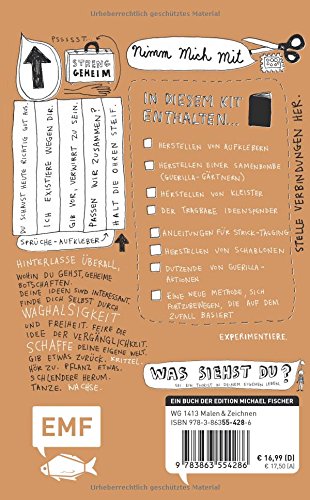 Urheberrechtlich geschütztes Material
PSSSST.
STRENG
GEHEIM
Nimm Mich Mit
DU SCHAUST HEUTE RICHTIG GUT AUS.
ICH EXISTIERE WEGEN DIR.
GIB VOR, VERWIRRT ZU SEIN.
PASSEN WIR ZUSAMMEN?
HALT DIE OHREN STEIF.
SPRÜCHE-AUFKLEBER
IN DIESEM KIT
ENTHALTEN...
HERSTELLEN VON AUFKLEBERN
HERSTELLEN EINER SAMENBOMBE
(GUERILLA-GÄRTNERN)
HERSTELLEN VON KLEISTER
DER TRAGBARE IDEENSPENDER
ANLEITUNGEN FÜR STRICK-TAGGING
HERSTELLEN VON SCHABLONEN
DUTZENDE VON GUERILLA-
AKTIONEN
EINE NEUE METHODE, SICH
FORTZUBEWEGEN, DIE AUF DEM
ZUFALL BASIERT
STELLE VERBINDUNGEN HER.
EXPERIMENTIERE.
HINTERLASSE ÜBERALL,
WOHIN DU GEHST, GEHEIME
BOTSCHAFTEN.
DEINE IDEEN SIND INTERESSANT.
FINDE DICH SELBST DURCH
WAGHALSIGKEIT
UND FREIHEIT. FEIRE DIE
IDEE DER VERGÄNGLICHKEIT.
SCHAFFE DEINE EIGENE WELT.
GIB ETWAS ZURÜCK. KRITZEL.
HÖR ZU. PFLANZ ETWAS.
SCHLENDERE HERUM.
TANZE. WACHSE.
WAS SIEHST DU?
SEI EIN TOURIST IN DEINEM EIGENEN LEBEN.
EMF
EIN BUCH DER EDITION MICHAEL FISCHER
WG 1413 Malen & Zeichnen
ISBN 978-3-86355-428-6
9 783863 554286
€ 16,99 (D)
€ 17,50 (A)
Urheberrechtlich geschütztes Material